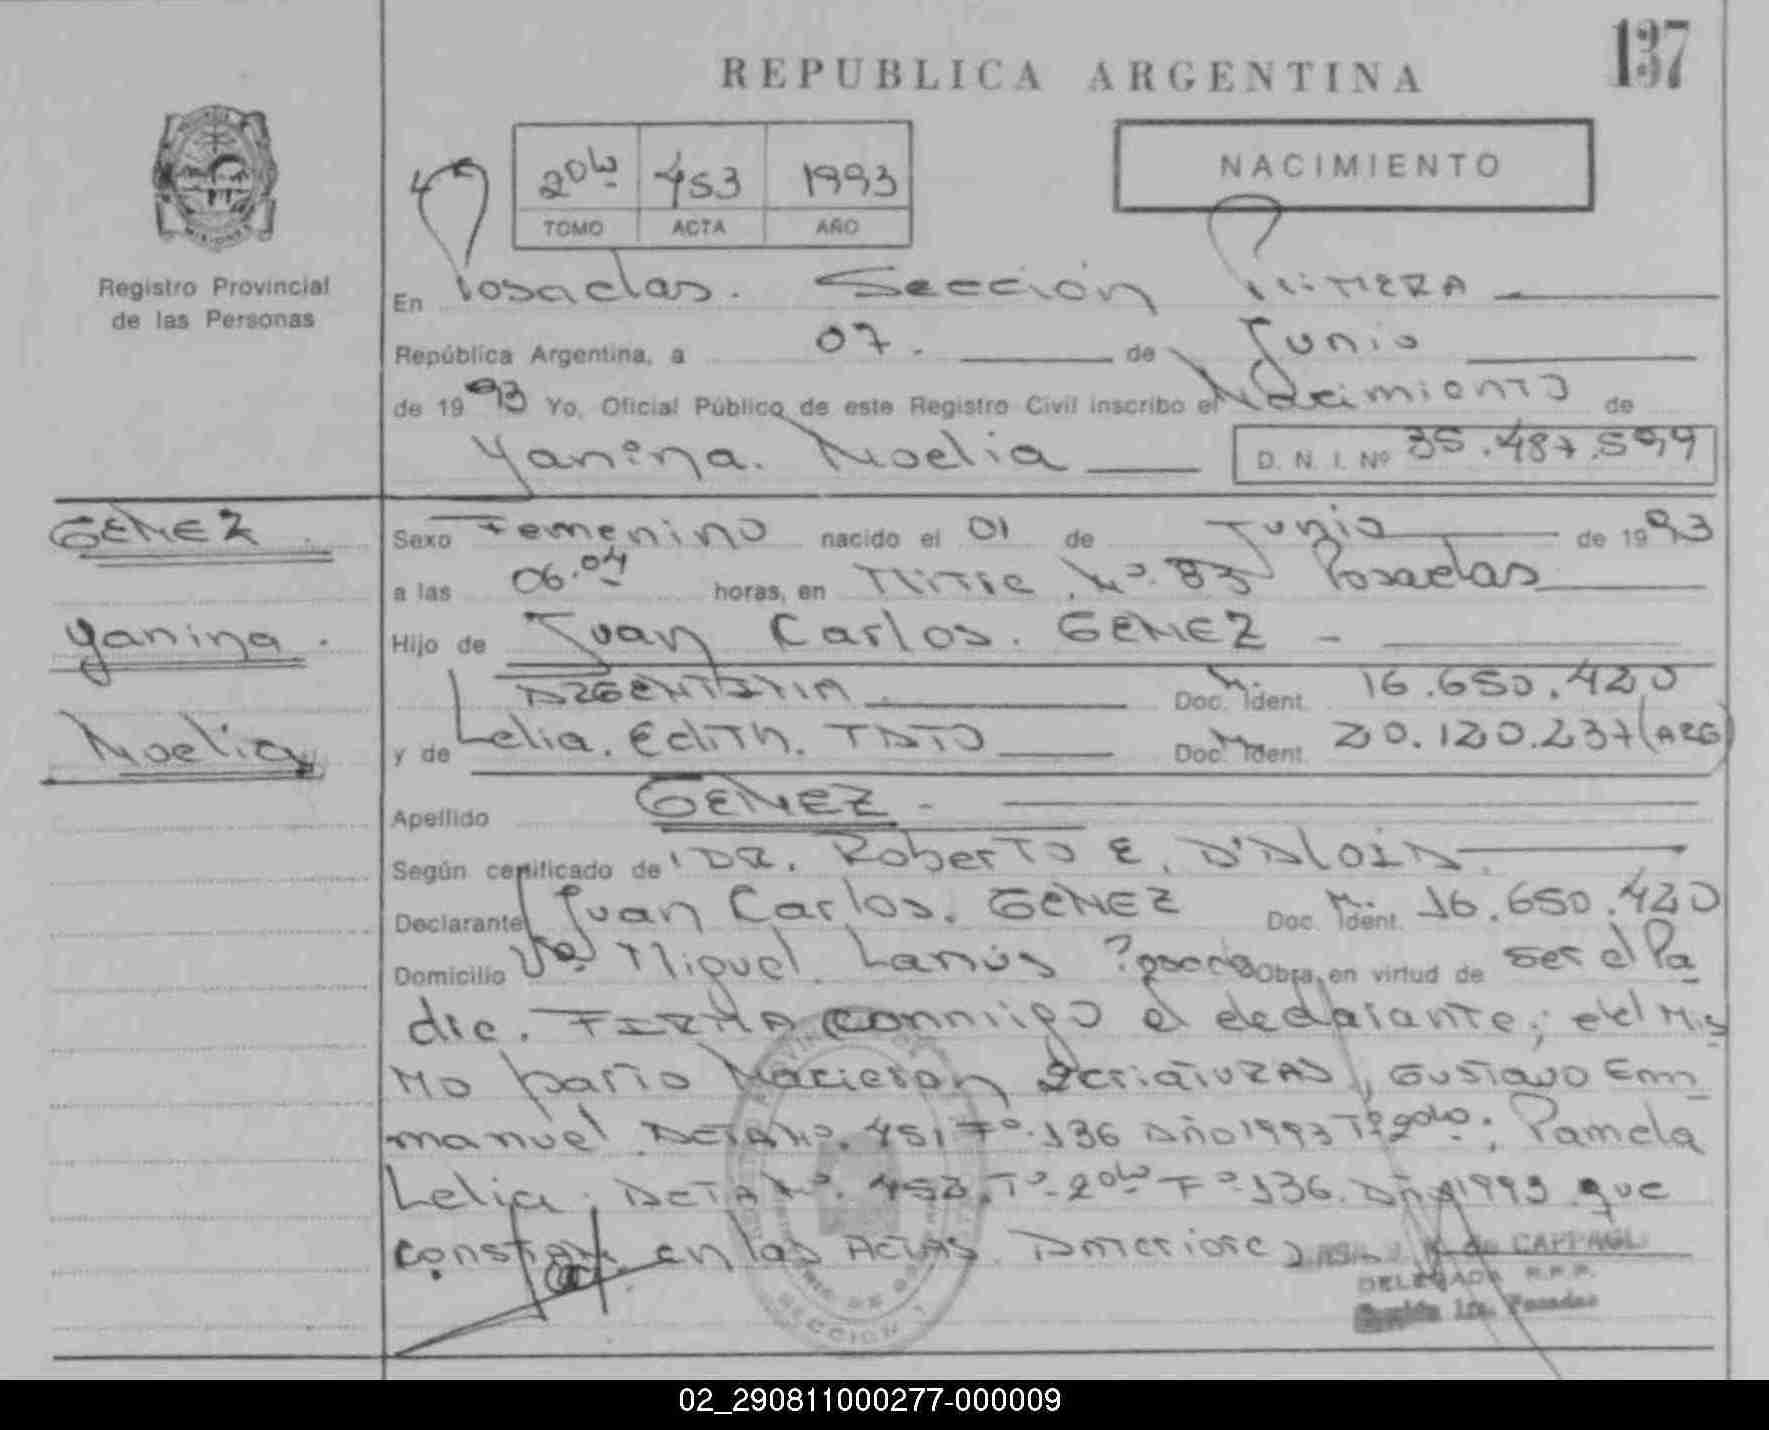 137
REPUBLICA ARGENTINA
NACIMIENTO
2º bis 453 1993
TOMO ACTA AÑO
MISIONES
Registro Provincial
de las Personas
En Posadas. Sección Primera
República Argentina, a 07. de Junio
de 1993 Yo, Oficial Público de este Registro Civil inscribo el Nacimiento de
Yanina. Noelia D. N. I. Nº 35.487.599
GENEZ
Yanina.
Noelia
Sexo Femenino nacido el 01 de Junio de 1993
a las 06.04 horas, en Mitre. Nº. 83 Posadas
Hijo de Juan Carlos. GENEZ -
ARGENTINA Doc. Ident. M. 16.650.420
y de Lelia. Edith. TATO Doc. Ident. M. 20.120.237 (ARG)
Apellido GENEZ -
Según certificado de DR. Roberto E. D'Aloia
Declarante Juan Carlos. GENEZ Doc. Ident. M. 16.650.420
Domicilio Vª Miguel. Lanús Posadas Obra, en virtud de ser el Pa
dre. FIRMA conmigo el declarante; del Mis
mo parto Nacieron 2 criaturas, Gustavo Em
manuel. Acta Nº. 451 Fº. 136 Año 1993 Tº 2º bis; Pamela
Lelia; Acta Nº. 452. Tº. 2º bis Fº 136. Año 1993 que
constan en las Actas. Anteriores
de CAPPAGLI
DELEGADA R.P.P.
Sección 1ra. Posadas
SECCION 1
02_290811000277-000009